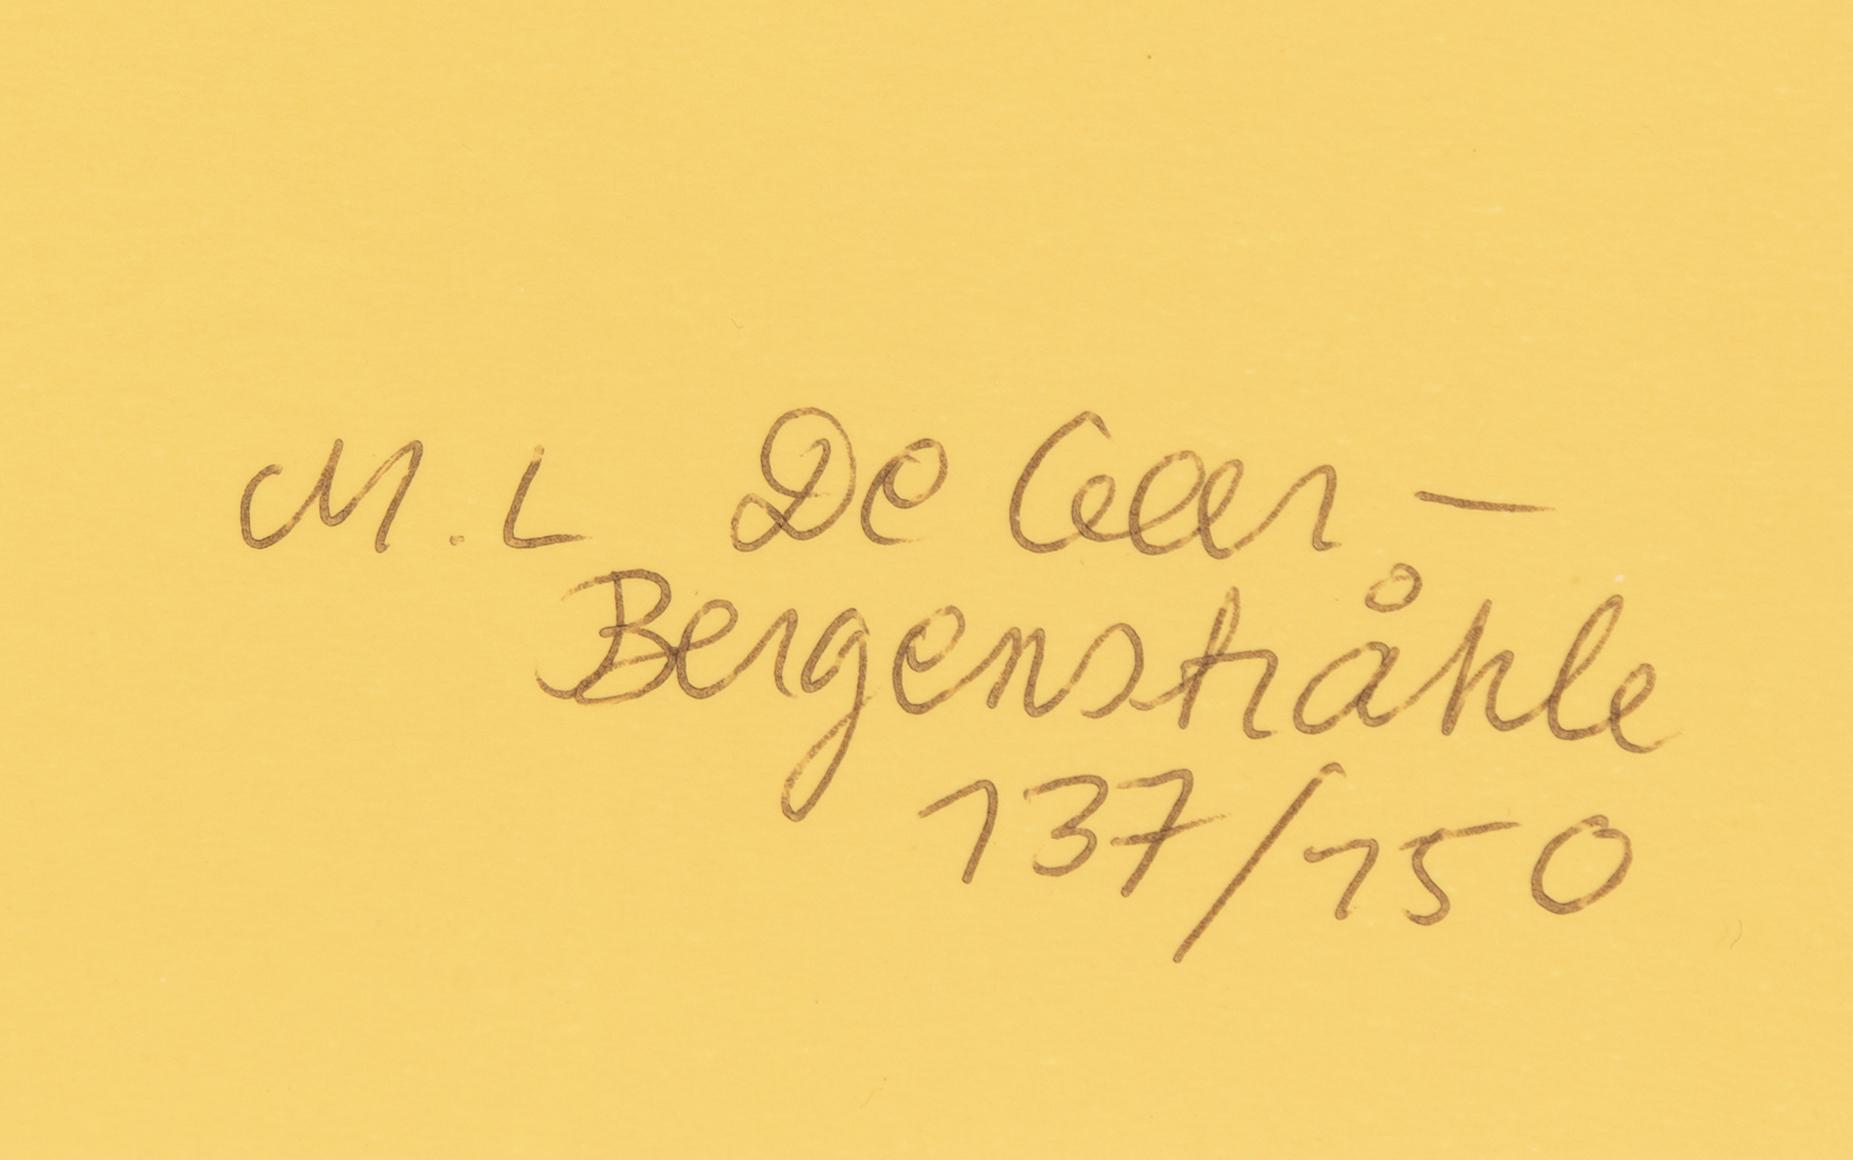 M. L De Geer-
Bergenstråhle
137/150